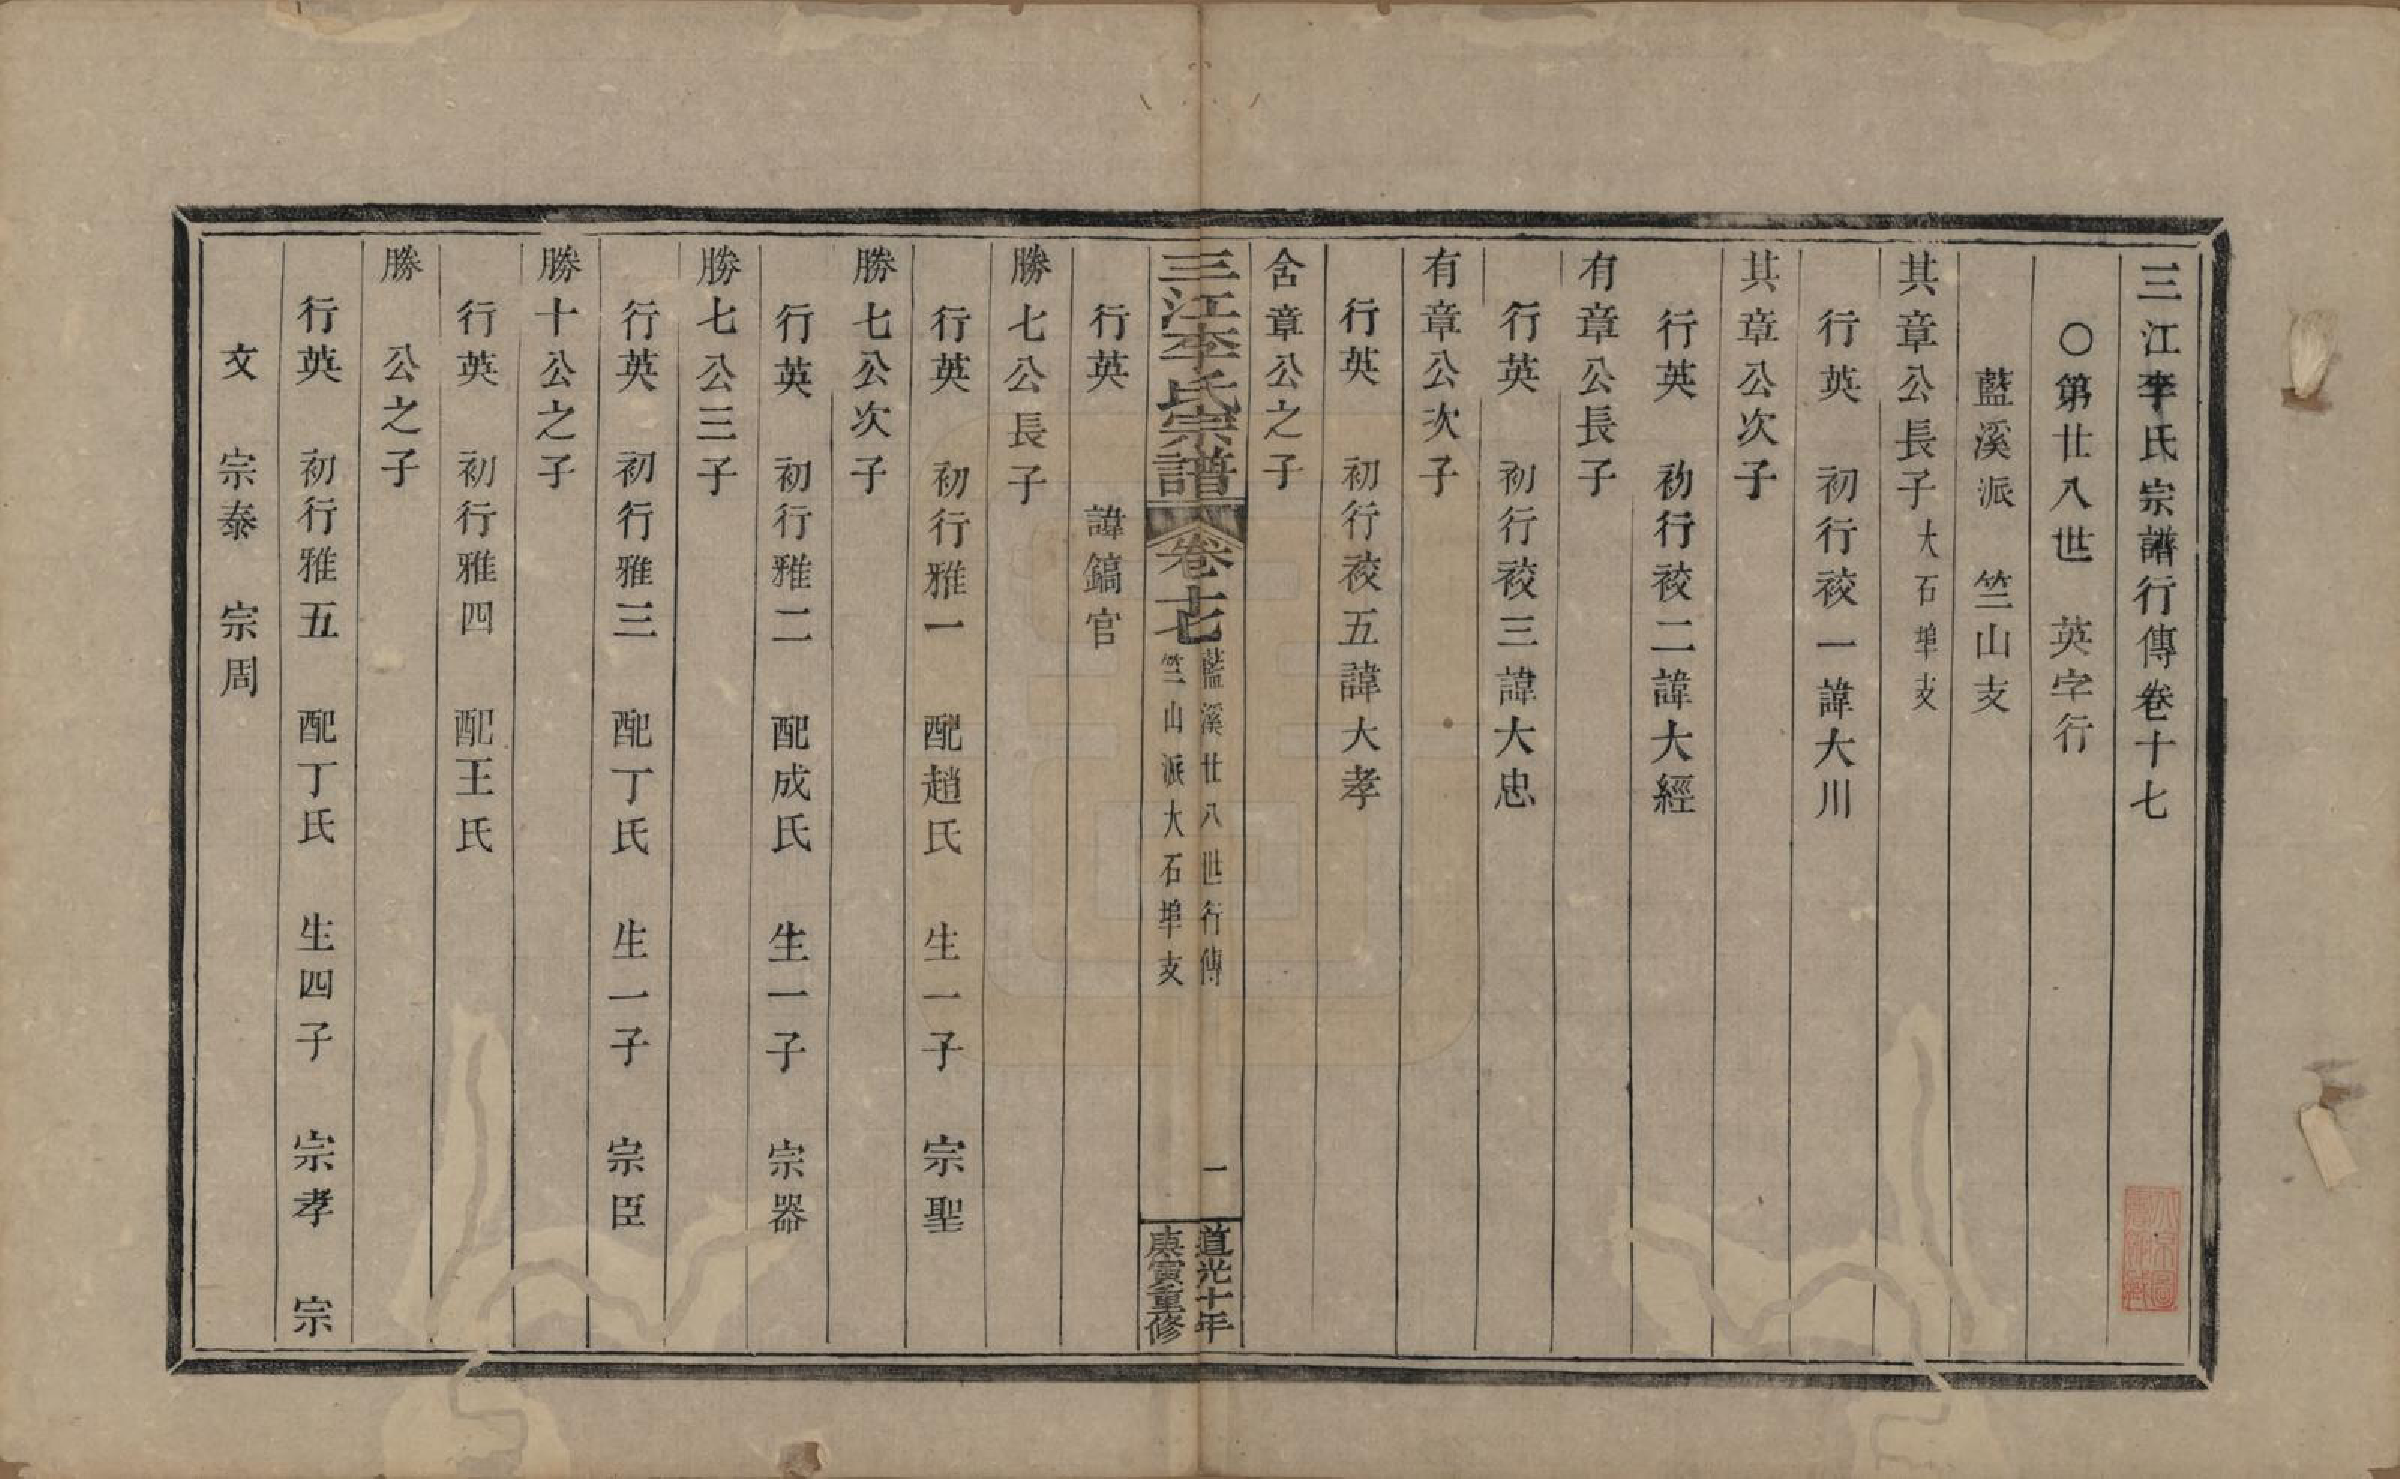 三江李氏宗譜行傳卷十七
○第廿八世　英字行
藍溪派　竺山支
其章公長子大石埠支
行英　初行裬一諱大川
其章公次子
行英　初行裬二諱大經
有章公長子
行英　初行裬三諱大忠
有章公次子
行英　初行裬五諱大孝
含章公之子
三江李氏宗譜　卷十七　藍溪廿八世行傳
竺山派大石埠支
一
道光十年
庚寅重修
行英　諱鎬官
勝七公長子
行英　初行雅一　配趙氏　生一子　宗聖
勝七公次子
行英　初行雅二　配成氏　生一子　宗器
勝七公三子
行英　初行雅三　配丁氏　生一子　宗臣
勝十公之子
行英　初行雅四　配王氏
勝　公之子
行英　初行雅五　配丁氏　生四子　宗孝　宗
文　宗泰　宗周